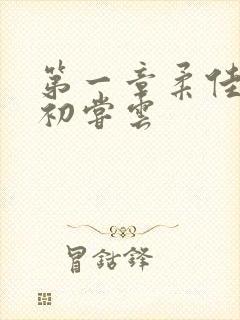 第一章柔佳
初尝云
冒鈷鋒